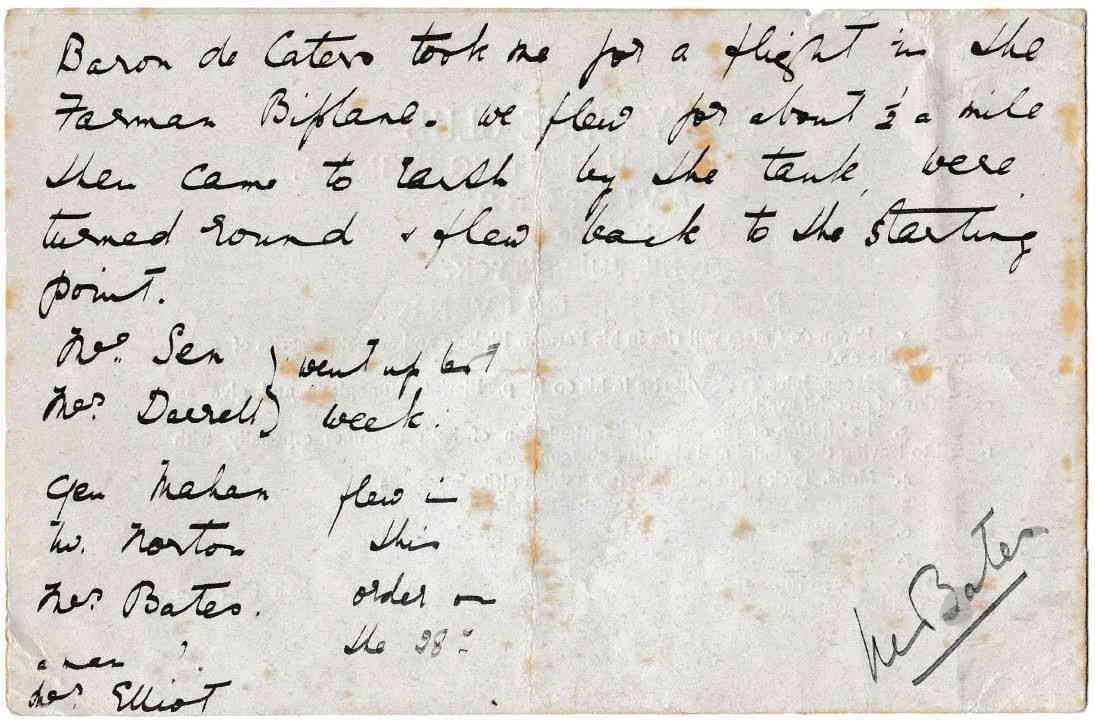 Baron de Caters took me for a flight in the
Farman Biplane. we flew for about ½ a mile
then came to earth by the tank, were
turned round & flew back to the starting
point.
Mrs. Sen } went up last
Mrs. Deerell } week.
Gen Mahan flew in
Mr. Norton this
Mrs. Bates. order on
a man ?. the 28th
Mrs. Elliot
Mr Bates